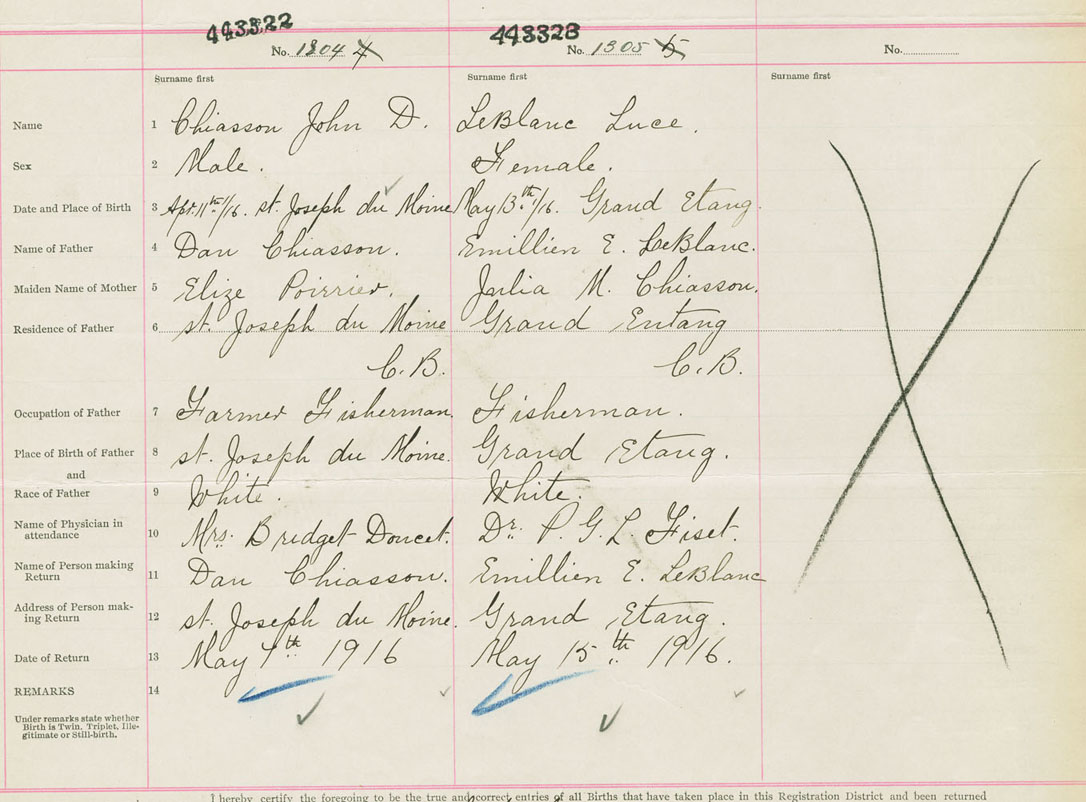 443322 443323
No. 1304 4 No. 1305 5 No.
Surname first Surname first Surname first
Name 1 Chiasson John D. LeBlanc Luce.
Sex 2 Male. Female.
Date and Place of Birth 3 Apr. 11th/16. st. Joseph du Moine May 13th/16. Grand Etang.
Name of Father 4 Dan Chiasson. Emillien E. LeBlanc.
Maiden Name of Mother 5 Elize Poirrier. Julia M. Chiasson.
Residence of Father 6 st. Joseph du Moine Grand Entang
C.B. C.B.
Occupation of Father 7 Farmer Fisherman. Fisherman.
Place of Birth of Father 8 st. Joseph du Moine. Grand Etang.
and
Race of Father 9 White. White.
Name of Physician in
attendance 10 Mrs. Bridget Doucet. Dr. P. G. L. Fiset.
Name of Person making
Return 11 Dan Chiasson. Emillien E. LeBlanc
Address of Person mak-
ing Return 12 st. Joseph du Moine. Grand Etang.
Date of Return 13 May 7th 1916 May 15th 1916.
REMARKS 14
Under remarks state whether
Birth is Twin, Triplet, Ille-
gitimate or Still-birth.
I hereby certify the foregoing to be the true and correct entries of all Births that have taken place in this Registration District and been returned